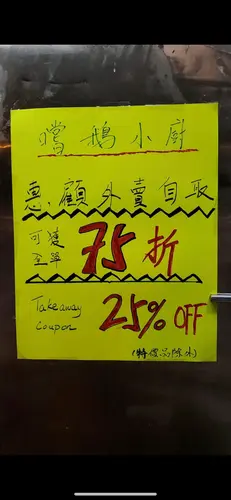 嚐鵝小廚
惠顧外賣自取
可獲
至平
75折
Takeaway
Coupon
25% OFF
(特價品除外)